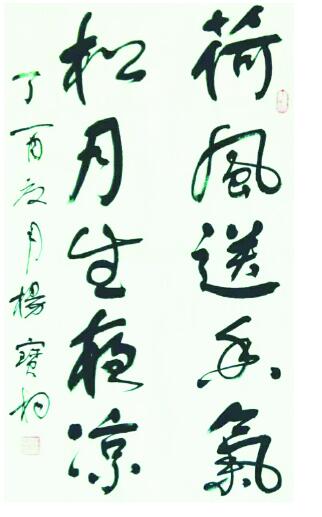 荷風送香氣
松月生夜凉
丁酉夏月楊寶